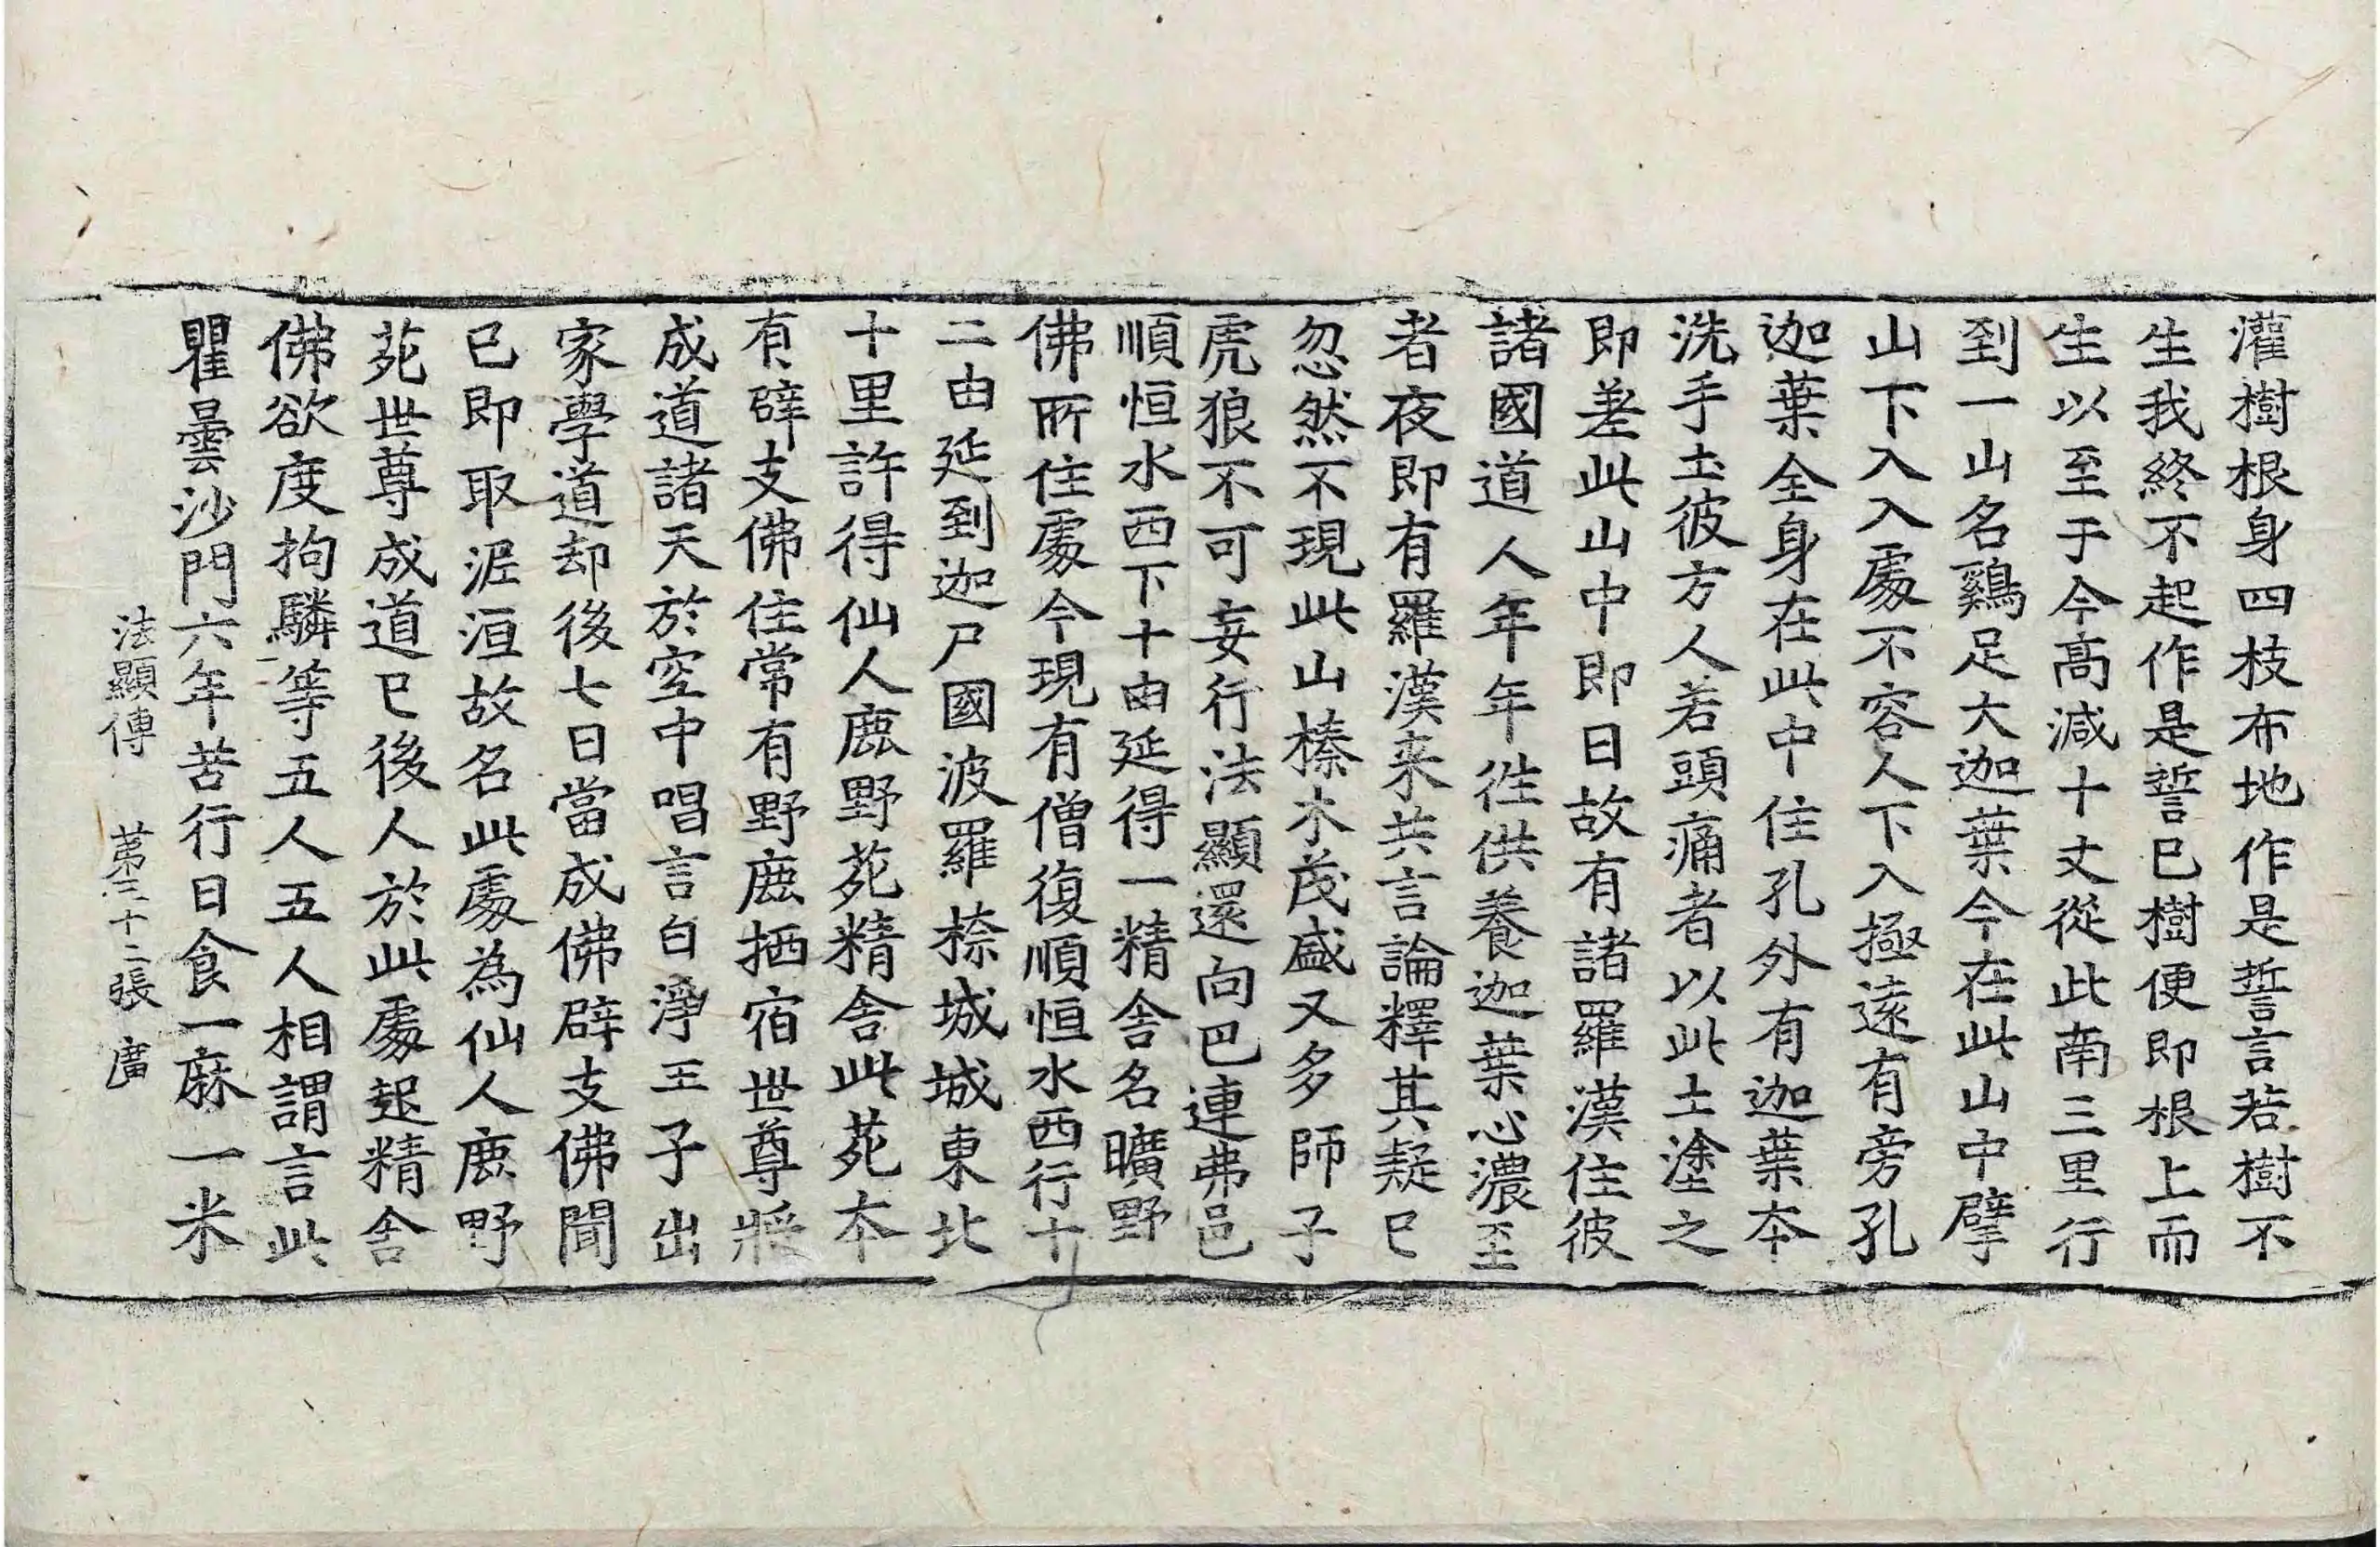 灌樹根身四枝布地作是誓言若樹不
生我終不起作是誓已樹便即根上而
生以至于今高減十丈從此南三里行
到一山名鷄足大迦葉今在此山中擘
山下入入處不容人下入極遠有旁孔
迦葉全身在此中住孔外有迦葉本
洗手土彼方人若頭痛者以此土塗之
即差此山中即日故有諸羅漢住彼
諸國道人年年往供養迦葉心濃至
者夜即有羅漢来共言論釋其疑已
忽然不現此山榛木茂盛又多師子
虎狼不可妄行法顯還向巴連弗邑
順恒水西下十由延得一精舍名曠野
佛所住處今現有僧復順恒水西行十
二由延到迦尸國波羅㮈城城東北
十里許得仙人鹿野苑精舍此苑本
有辟支佛住常有野鹿栖宿世尊將
成道諸天於空中唱言白淨王子出
家學道却後七日當成佛辟支佛聞
已即取泥洹故名此處為仙人鹿野
苑世尊成道已後人於此處起精舍
佛欲度拘驎等五人五人相謂言此
瞿曇沙門六年苦行日食一麻一米
法顯傳 苐三十二張 廣